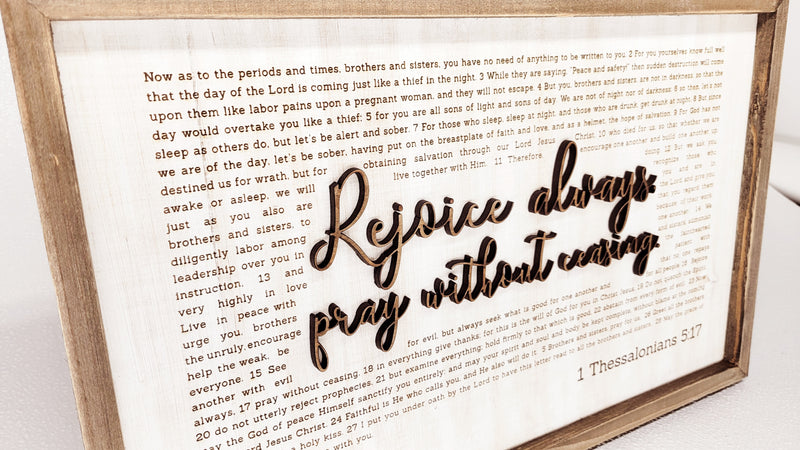 Now as to the periods and times, brothers and sisters, you have no need of anything to be written to you. 2 For you yourselves know full well
that the day of the Lord is coming just like a thief in the night. 3 While they are saying, "Peace and safety!" then sudden destruction will come
upon them like labor pains upon a pregnant woman, and they will not escape. 4 But you, brothers and sisters, are not in darkness, so that the
day would overtake you like a thief; 5 for you are all sons of light and sons of day. We are not of night nor of darkness; 6 so then, let's not
sleep as others do, but let's be alert and sober. 7 For those who sleep, sleep at night, and those who are drunk, get drunk at night. 8 But since
we are of the day, let's be sober, having put on the breastplate of faith and love, and as a helmet, the hope of salvation. 9 For God has not
destined us for wrath, but for obtaining salvation through our Lord Jesus Christ, 10 who died for us, so that whether we are
awake or asleep, we will live together with Him. 11 Therefore, encourage one another and build one another up,
just as you also are doing. 12 But we ask you
brothers and sisters, to recognize those who
diligently labor among you and are in
leadership over you in the Lord and give you
instruction, 13 and that you regard them
very highly in love because of their work.
Live in peace with one another. 14 We
urge you, brothers and sisters, admonish
the unruly, encourage the fainthearted
help the weak, be patient with
everyone. 15 See that no one repays
another with evil for evil, but always seek what is good for one another and for all people. 16 Rejoice
always, 17 pray without ceasing, 18 in everything give thanks; for this is the will of God for you in Christ Jesus. 19 Do not quench the Spirit,
20 do not utterly reject prophecies, 21 but examine everything; hold firmly to that which is good, 22 abstain from every form of evil. 23 Now
may the God of peace Himself sanctify you entirely; and may your spirit and soul and body be kept complete, without blame at the coming
Lord Jesus Christ. 24 Faithful is He who calls you, and He also will do it. 25 Brothers and sisters, pray for us. 26 Greet all the brothers
holy kiss. 27 I put you under oath by the Lord to have this letter read to all the brothers and sisters. 28 May the grace of
with you.
Rejoice always,
pray without ceasing.
1 Thessalonians 5:17